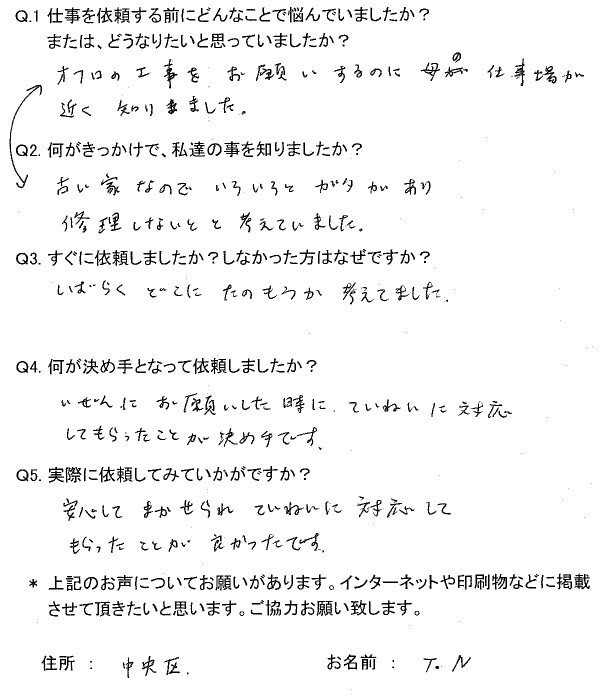 Q.1 仕事を依頼する前にどんなことで悩んでいましたか？
または、どうなりたいと思っていましたか？
オフロの工事を お願いするのに 母の 仕事場が
近く 知りました。
Q2. 何がきっかけで、私達の事を知りましたか？
古い家なので いろいろと ガタがあり
修理しないとと 考えていました。
Q3. すぐに依頼しましたか？しなかった方はなぜですか？
しばらく どこに たのもうか 考えてました.
Q4. 何が決め手となって依頼しましたか？
いぜんに お願いした 時に、ていねいに 対応
してもらったことが 決め手です.
Q5. 実際に依頼してみていかがですか？
安心して まかせられ ていねいに 対応して
もらった ことが 良かったです.
* 上記のお声についてお願いがあります。インターネットや印刷物などに掲載
させて頂きたいと思います。ご協力お願い致します。
住所 : 中央区. お名前 : T. N